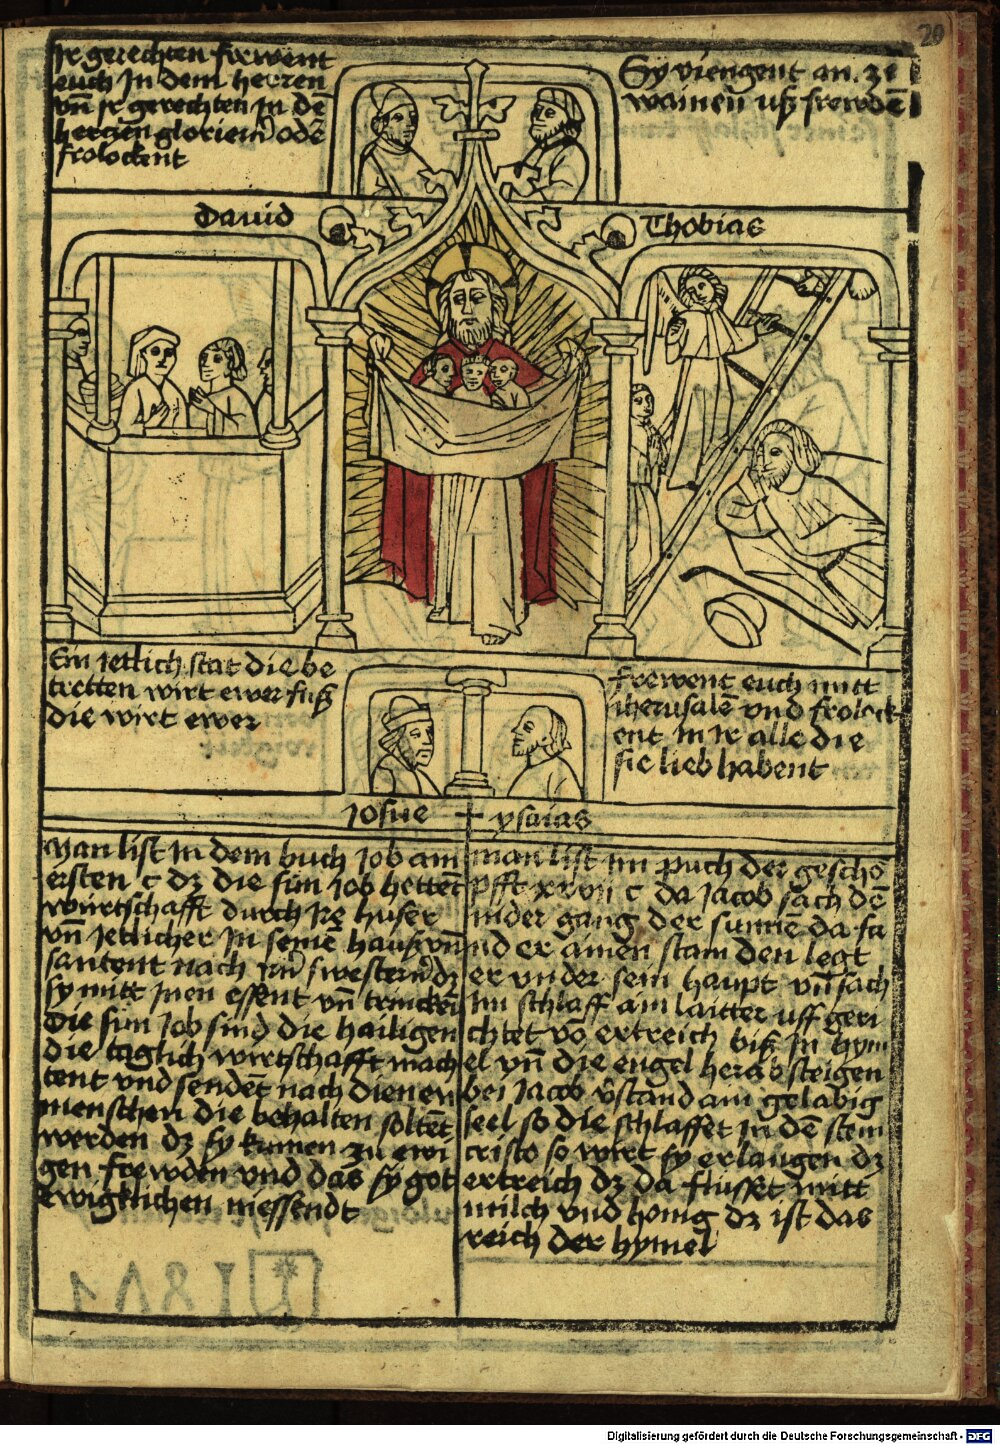 Ir gerechten frewent
euch In dem herren
vn̄ Ir gerechten In dē
herczen gloriern̄ odē
frolockent
Sy viengent an ze
wainen vß frewdē
20
Dauid
Thobias
Ein yetlich stat die be
tretten wirt ewer fuß
die wirt ewer
frewent euch mitt
iherusalē vnd frolock
ent in Ir alle die
sie lieb habent
Josue + ysaias
Man list In dem buch Job am
ersten c dz die sün Job hettēt
würtschafft durch Ire huser
vn̄ yetlicher In seinē hauß vn̄
santent nach irn̄ swestern̄ dz
sy mitt Inen essent vn̄ trincken
Die sün Job sind die hailigen
die täglich wirtschafft mach
tent vnd sendēt nach dienen
menschen die behalten soltēt
werden dz sy kumen zu ewi
gen frewden vnd das sy got
ewigklichen niessendt
man list Im puch der geschö
pfft xxviii c da Jacob sach dē
nider gang der sunnē da fa
nd er ainen stain den legt
er vnder sein haupt vn̄ sach
Im schlaff ain laitter vff geri
chtet vō ertreich biß In hym
el vn̄ die engel herab steigen
bei Jacob v̄stand ain gelabig
seel so die schlaffet In dē stein
cristo so wirt sy erlangen dz
ertreich dz da flusset mitt
milch vnd honig dz ist das
reich der hymel
Digitalisierung gefördert durch die Deutsche Forschungsgemeinschaft - DFG